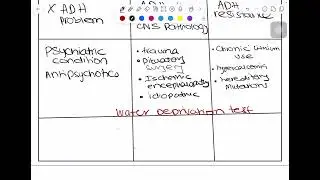 X ADH
Problem
CNS Pathology
ADH
resistance
Psychiatric
condition
Antipsychotics
• trauma
• Pituitary
surgery
• Ischemic
encephalopathy
• idiopathic
• Chronic lithium
use
• hypercalcemia
• hereditary
Mutations
water deprivation test